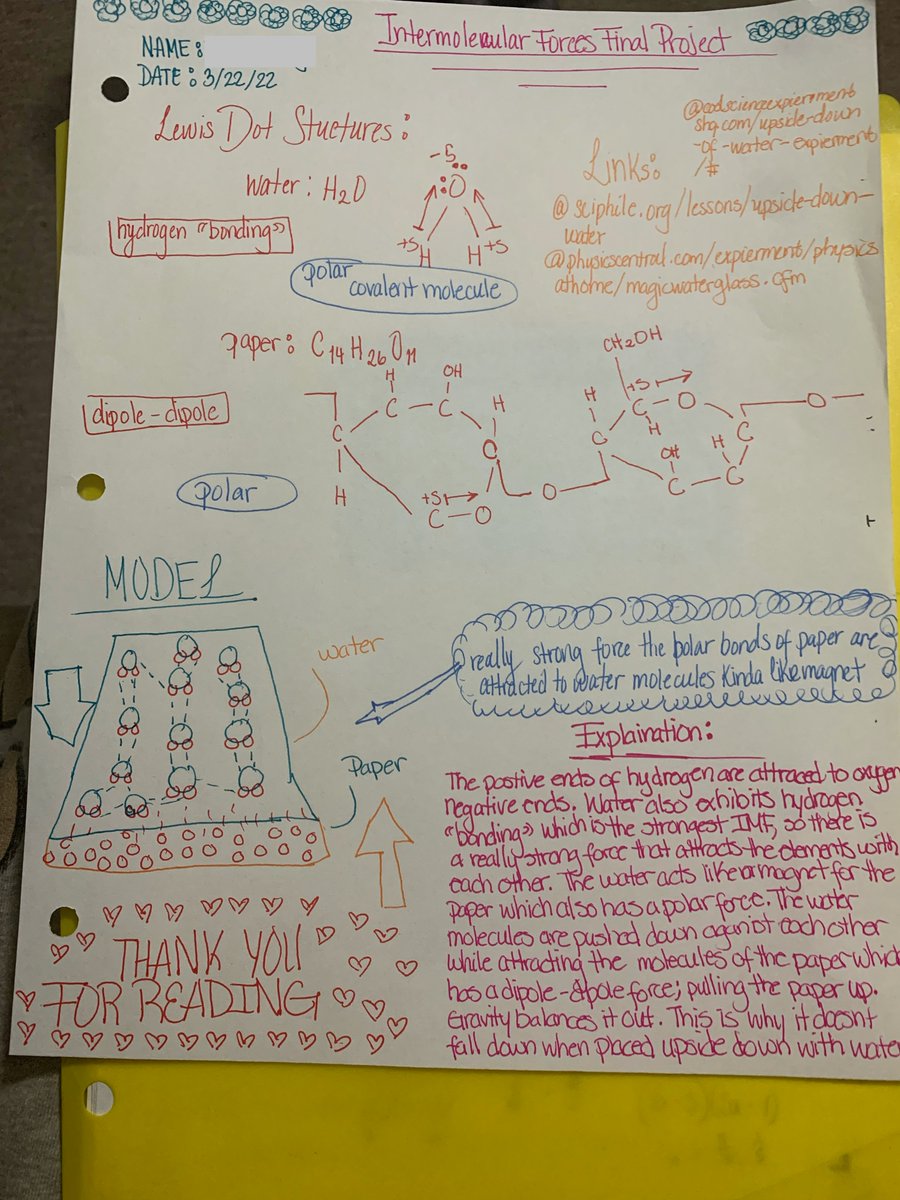 Intermolecular Forces Final Project
NAME:
DATE: 3/22/22
Lewis Dot Stuctures:
Water: H2O
hydrogen "bonding"
-δ
:O
+δ
H
H
+δ
polar
covalent molecule
Links:
shq.com/upside-down
-of-water-expierment
/#
@sciphile.org/lessons/upside-down-
water
@physicscentral.com/expierment/physics
athome/magicwaterglass.cfm
paper: C14H26O11
dipole-dipole
polar
H
OH
C - C
H
C
C
H
+δ
C - O
O
CH2OH
+δ
H
C - O
O
H
C
OH
H
C
C
C
MODEL
water
Paper
really strong force the polar bonds of paper are
attracted to water molecules Kinda like magnet
Explaination:
The postive ends of hydrogen are attraced to oxygen
negative ends. Water also exhibits hydrogen
"bonding" which is the strongest IMF, so there is
a really strong force that attracts the elements with
each other. The water acts like a magnet for the
paper which also has a polar force. The water
molecules are pushed down against each other
while attracting the molecules of the paper which
has a dipole-dipole force; pulling the paper up.
Gravity balances it out. This is why it doesnt
fall down when placed upside down with water
THANK YOU
FOR READING